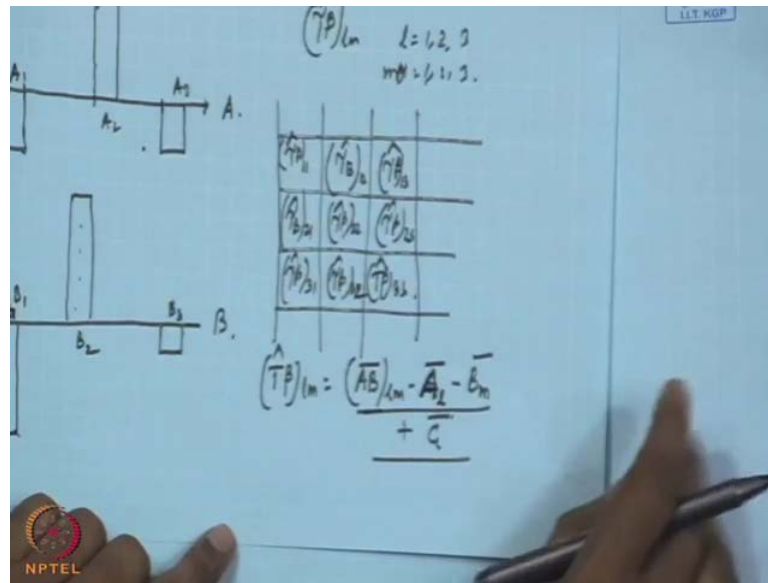 I.I.T. KGP
(τβ)lm l = 1, 2, 3
m = 1, 2, 3.
A1 A2 A3 A.
(τ̂β)11 (τ̂β)12 (τ̂β)13
(τ̂β)21 (τ̂β)22 (τ̂β)23
(τ̂β)31 (τ̂β)32 (τ̂β)33.
B1 B2 B3 B.
(τ̂β)lm = (A̅B̅)lm - A̅l - B̅m
+ G̅
NPTEL